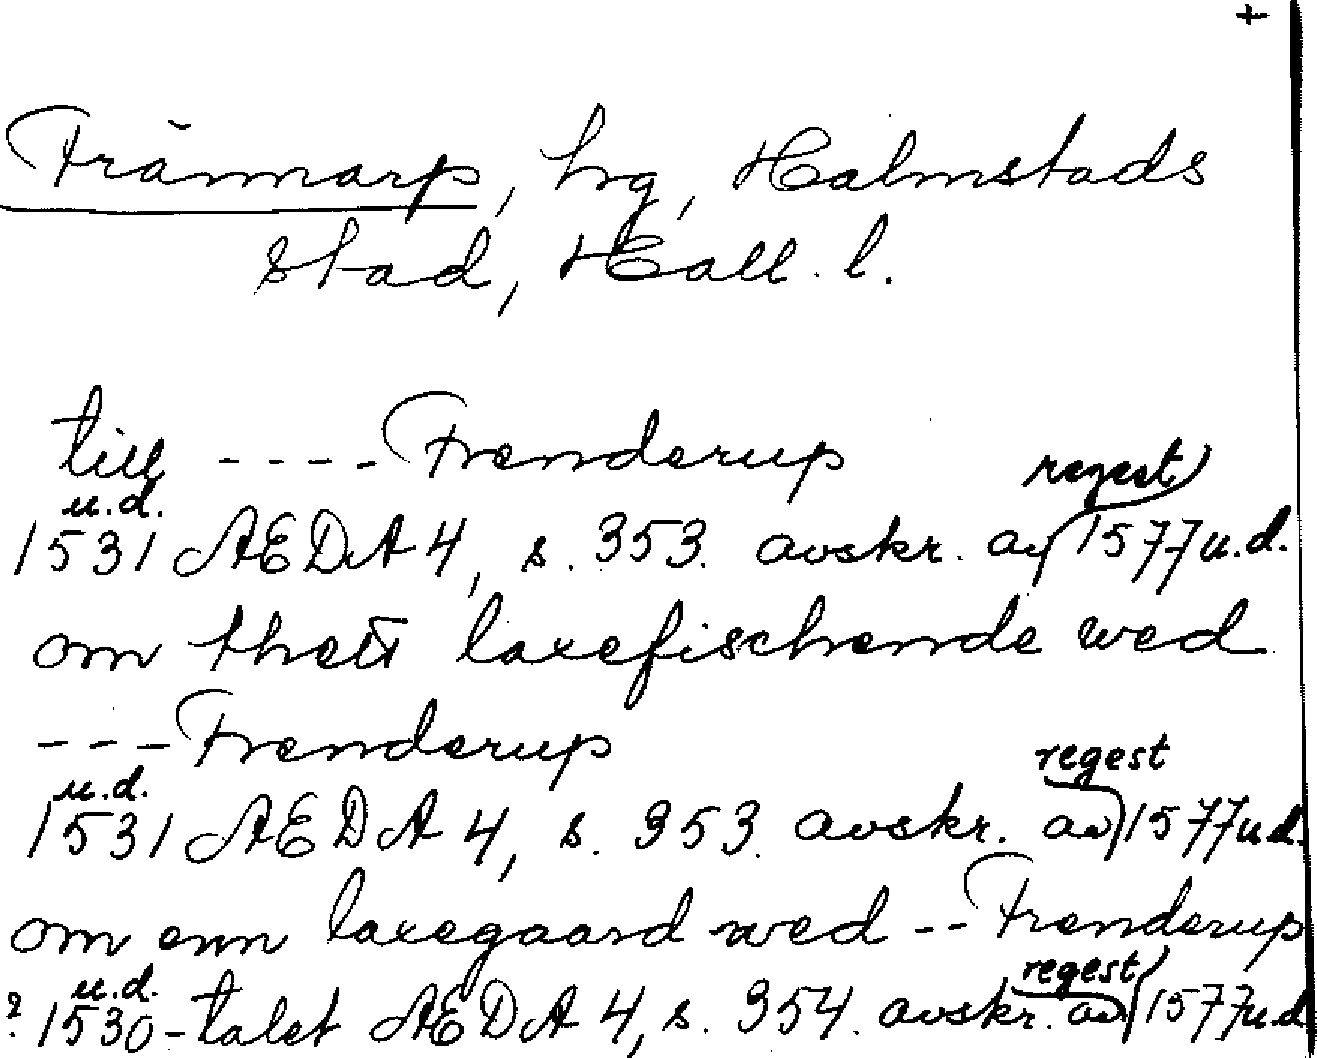 +
Frännarp, hg, Halmstads
stad, Hall. l.
till ---- Frenderup
u.d. regest
1531 AEDA 4, s. 353. avskr. av 1577 u.d.
om thett laxefischende wed
--- Frenderup
u.d. regest
1531 AEDA 4, s. 353. avskr. av 1577 u.d.
om enn laxegaard wed -- Frenderup
u.d. regest
? 1530-talet AEDA 4, s. 354. avskr. av 1577 u.d